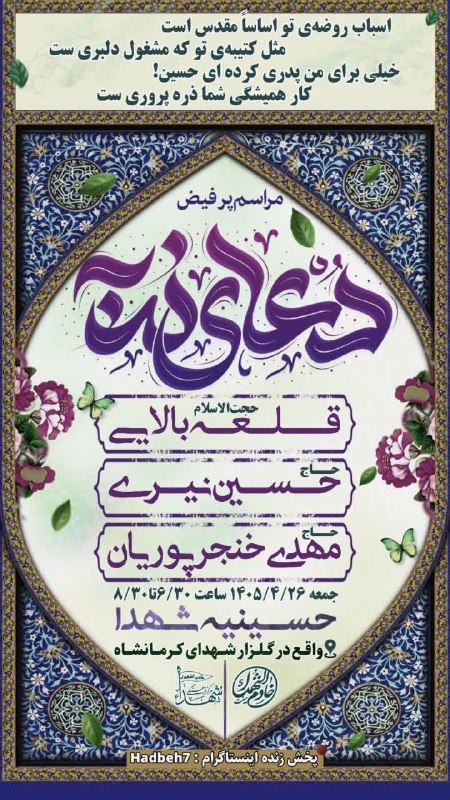 اسباب روضه‌ی تو اساساً مقدس است
مثل کتیبه‌ی تو که مشغول دلبری ست
خیلی برای من پدری کرده ای حسین!
کار همیشگی شما ذره پروری ست
مراسم پر فیض
دعای ندبه
حجت‌الاسلام
قلعه بالایی
حاج
حسین نیری
حاج
مهدی خنجر پوریان
جمعه ۱۴۰۵/۴/۲۶ ساعت ۶/۳۰ تا ۸/۳۰
حسینیه شهدا
واقع در گلزار شهدای کرمانشاه
پخش زنده اینستاگرام : Hadbeh7